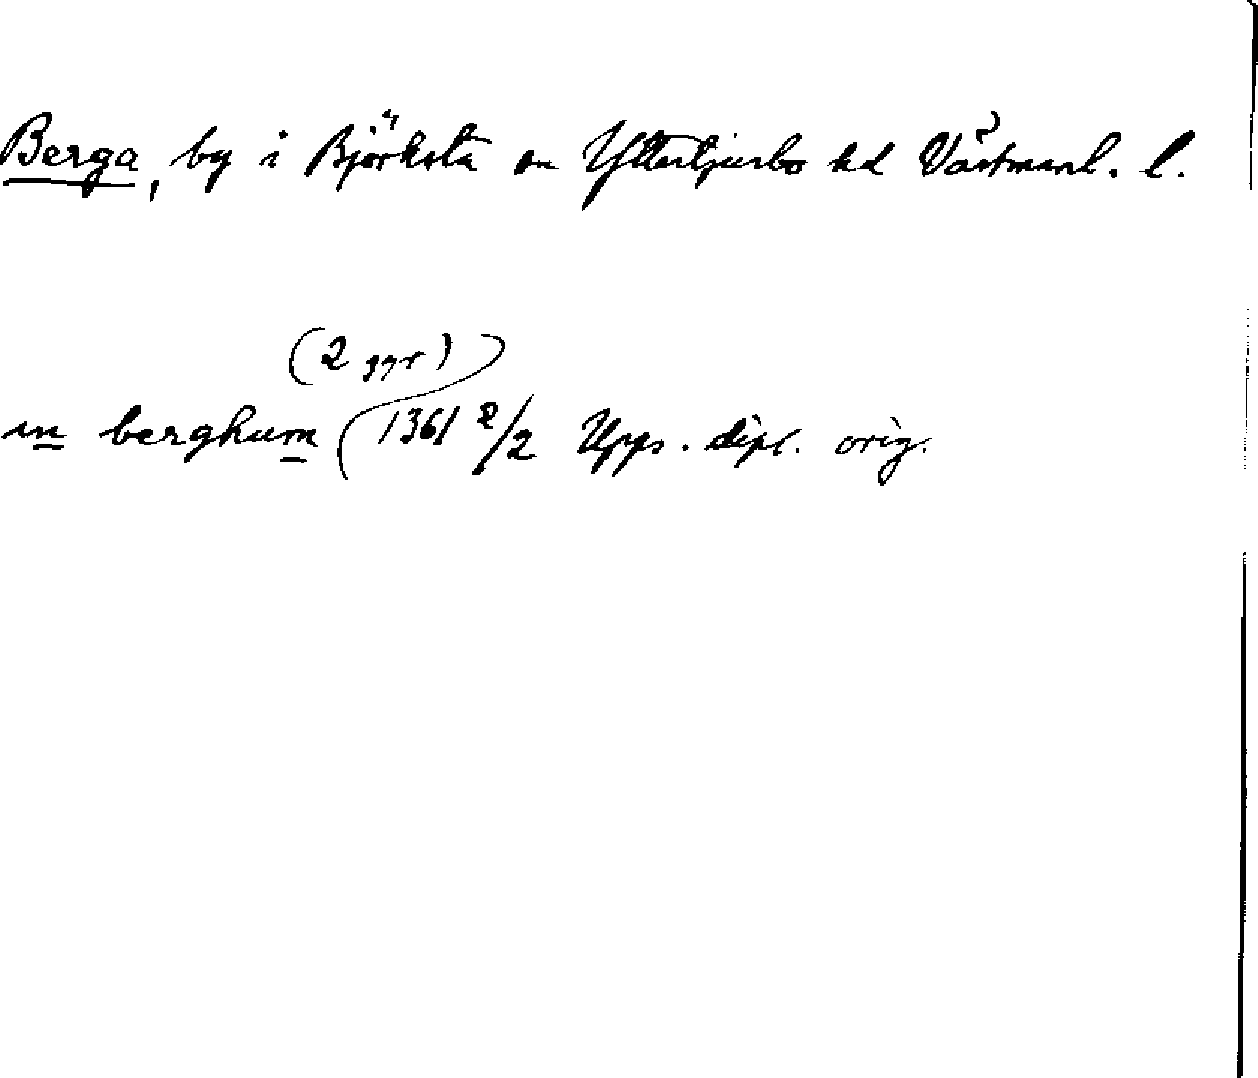 Berga, by i Björksta sn Yttertjurbo hd Västmanl. l.
(2 ggr)
in berghum (1361 2/2 Upps. dipl. orig.)